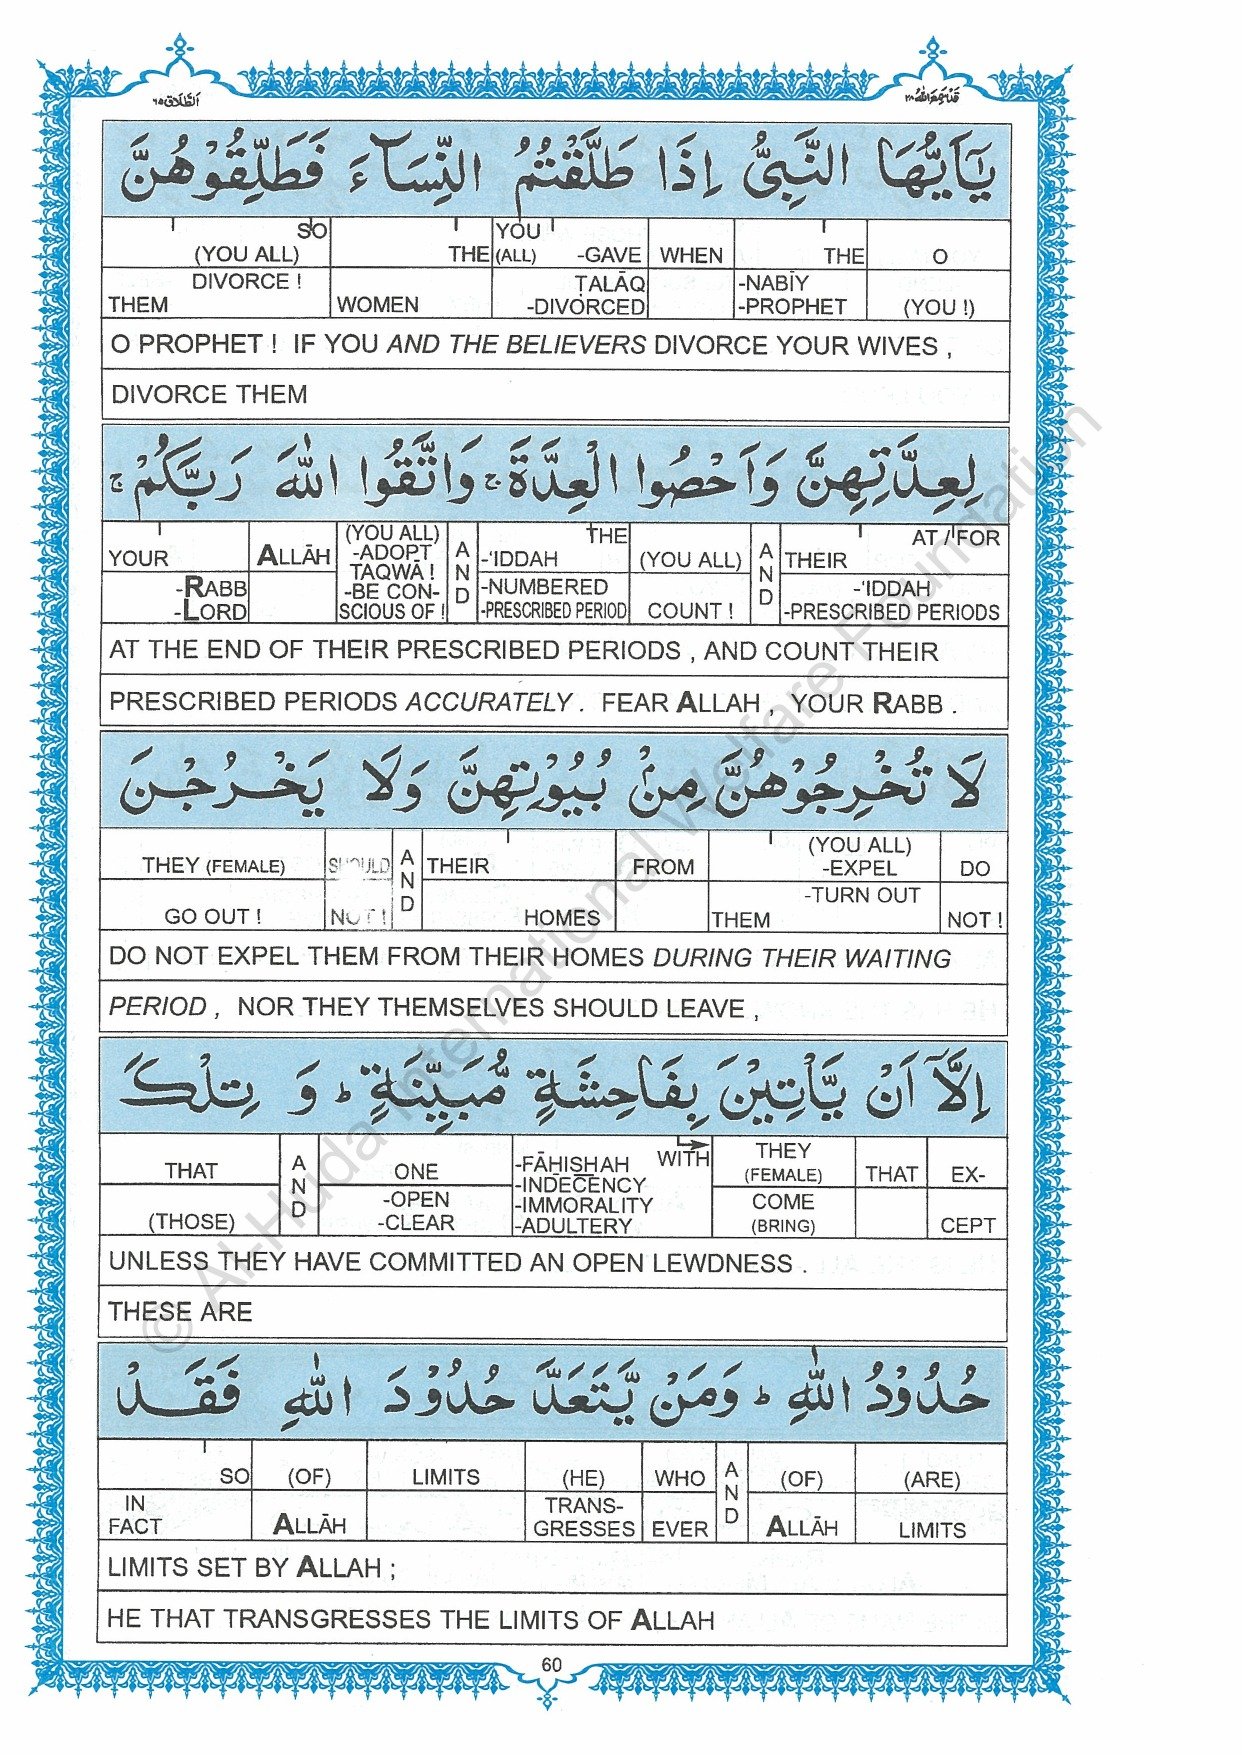 اَلطَّلَاق ٦٥
قَدْ سَمِعَ اللّٰهُ ٢٨
يٰۤاَيُّهَا النَّبِىُّ اِذَا طَلَّقْتُمُ النِّسَآءَ فَطَلِّقُوْهُنَّ
SO YOU
(YOU ALL) THE (ALL) -GAVE WHEN THE O
DIVORCE ! TALĀQ -NABĪY
THEM WOMEN -DIVORCED -PROPHET (YOU !)
O PROPHET ! IF YOU AND THE BELIEVERS DIVORCE YOUR WIVES ,
DIVORCE THEM
لِعِدَّتِهِنَّ وَاَحْصُوا الْعِدَّةَ ۚ وَاتَّقُوا اللّٰهَ رَبَّكُمْ ۚ
(YOU ALL) THE AT / FOR
YOUR ALLĀH -ADOPT AND -‘IDDAH (YOU ALL) AND THEIR
TAQWĀ !
-RABB -BE CON- -NUMBERED -‘IDDAH
-LORD SCIOUS OF ! -PRESCRIBED PERIOD COUNT ! -PRESCRIBED PERIODS
AT THE END OF THEIR PRESCRIBED PERIODS , AND COUNT THEIR
PRESCRIBED PERIODS ACCURATELY . FEAR ALLAH , YOUR RABB .
لَا تُخْرِجُوْهُنَّ مِنْۢ بُيُوْتِهِنَّ وَلَا يَخْرُجْنَ
(YOU ALL)
THEY (FEMALE) SHOULD AND THEIR FROM -EXPEL DO
-TURN OUT
GO OUT ! NOT ! HOMES THEM NOT !
DO NOT EXPEL THEM FROM THEIR HOMES DURING THEIR WAITING
PERIOD , NOR THEY THEMSELVES SHOULD LEAVE ,
اِلَّاۤ اَنْ يَّاْتِيْنَ بِفَاحِشَةٍ مُّبَيِّنَةٍ ؕ وَ تِلْكَ
THAT AND ONE -FĀHISHAH WITH THEY (FEMALE) THAT EX-
-OPEN -INDECENCY COME
-CLEAR -IMMORALITY
(THOSE) -ADULTERY (BRING) CEPT
UNLESS THEY HAVE COMMITTED AN OPEN LEWDNESS .
THESE ARE
حُدُوْدُ اللّٰهِ ؕ وَمَنْ يَّتَعَدَّ حُدُوْدَ اللّٰهِ فَقَدْ
SO (OF) LIMITS (HE) WHO AND (OF) (ARE)
IN TRANS-
FACT ALLĀH GRESSES EVER ALLĀH LIMITS
LIMITS SET BY ALLAH ;
HE THAT TRANSGRESSES THE LIMITS OF ALLAH
60
© Al-Huda International Welfare Foundation